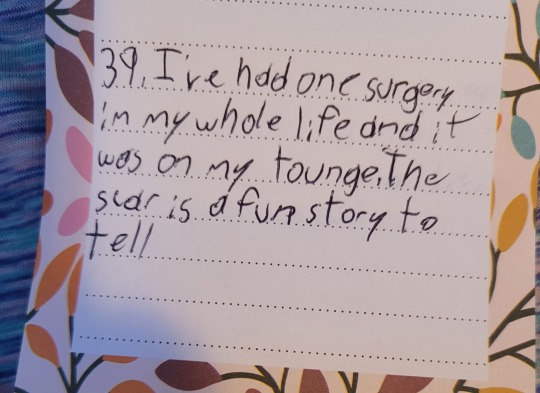 39. I've had one surgery
in my whole life and it
was on my tounge. The
scar is a fun story to
tell